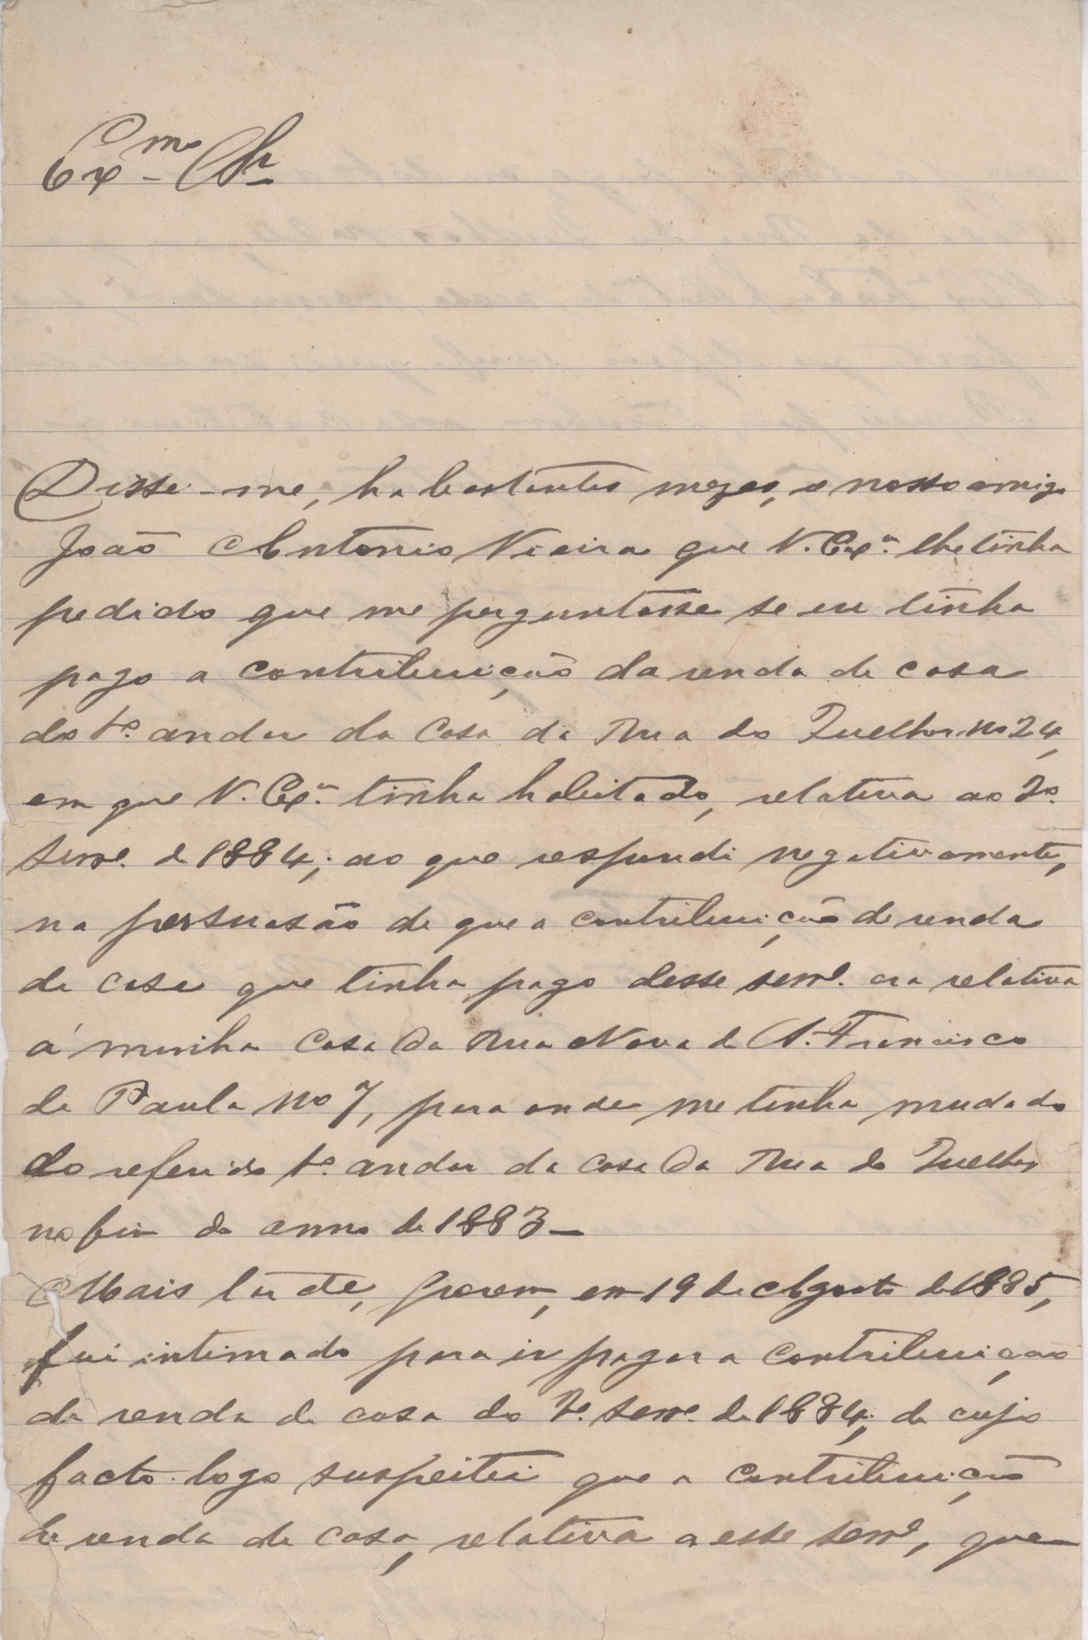 Exmo Sr
Disse-me, ha bastantes mezes, o nosso amigo
João Antonio Vieira que V. Exª. lhe tinha
pedido que me perguntasse se eu tinha
pago a contribuição da renda de casa
do 1º. andar da casa da Rua do Quelhas nº 24,
em que V. Exª. tinha habitado, relativa ao 2º.
Seme. de 1884; ao que respondi negativamente,
na persuasão de que a contribuição de renda
de casa que tinha pago desse seme. era relativa
á minha casa da Rua Nova de S. Francisco
de Paula nº 7, para onde me tinha mudado
do referido 1º andar da casa da Rua do Quelhas
no fim do anno de 1883 —
Mais tarde, porem, em 19 de Agosto de 1885,
fui intimado para ir pagar a contribuição
de renda de casa do 2º. seme. de 1884; de cujo
facto logo suspeitei que a contribuição
de renda de casa, relativa a este seme, que